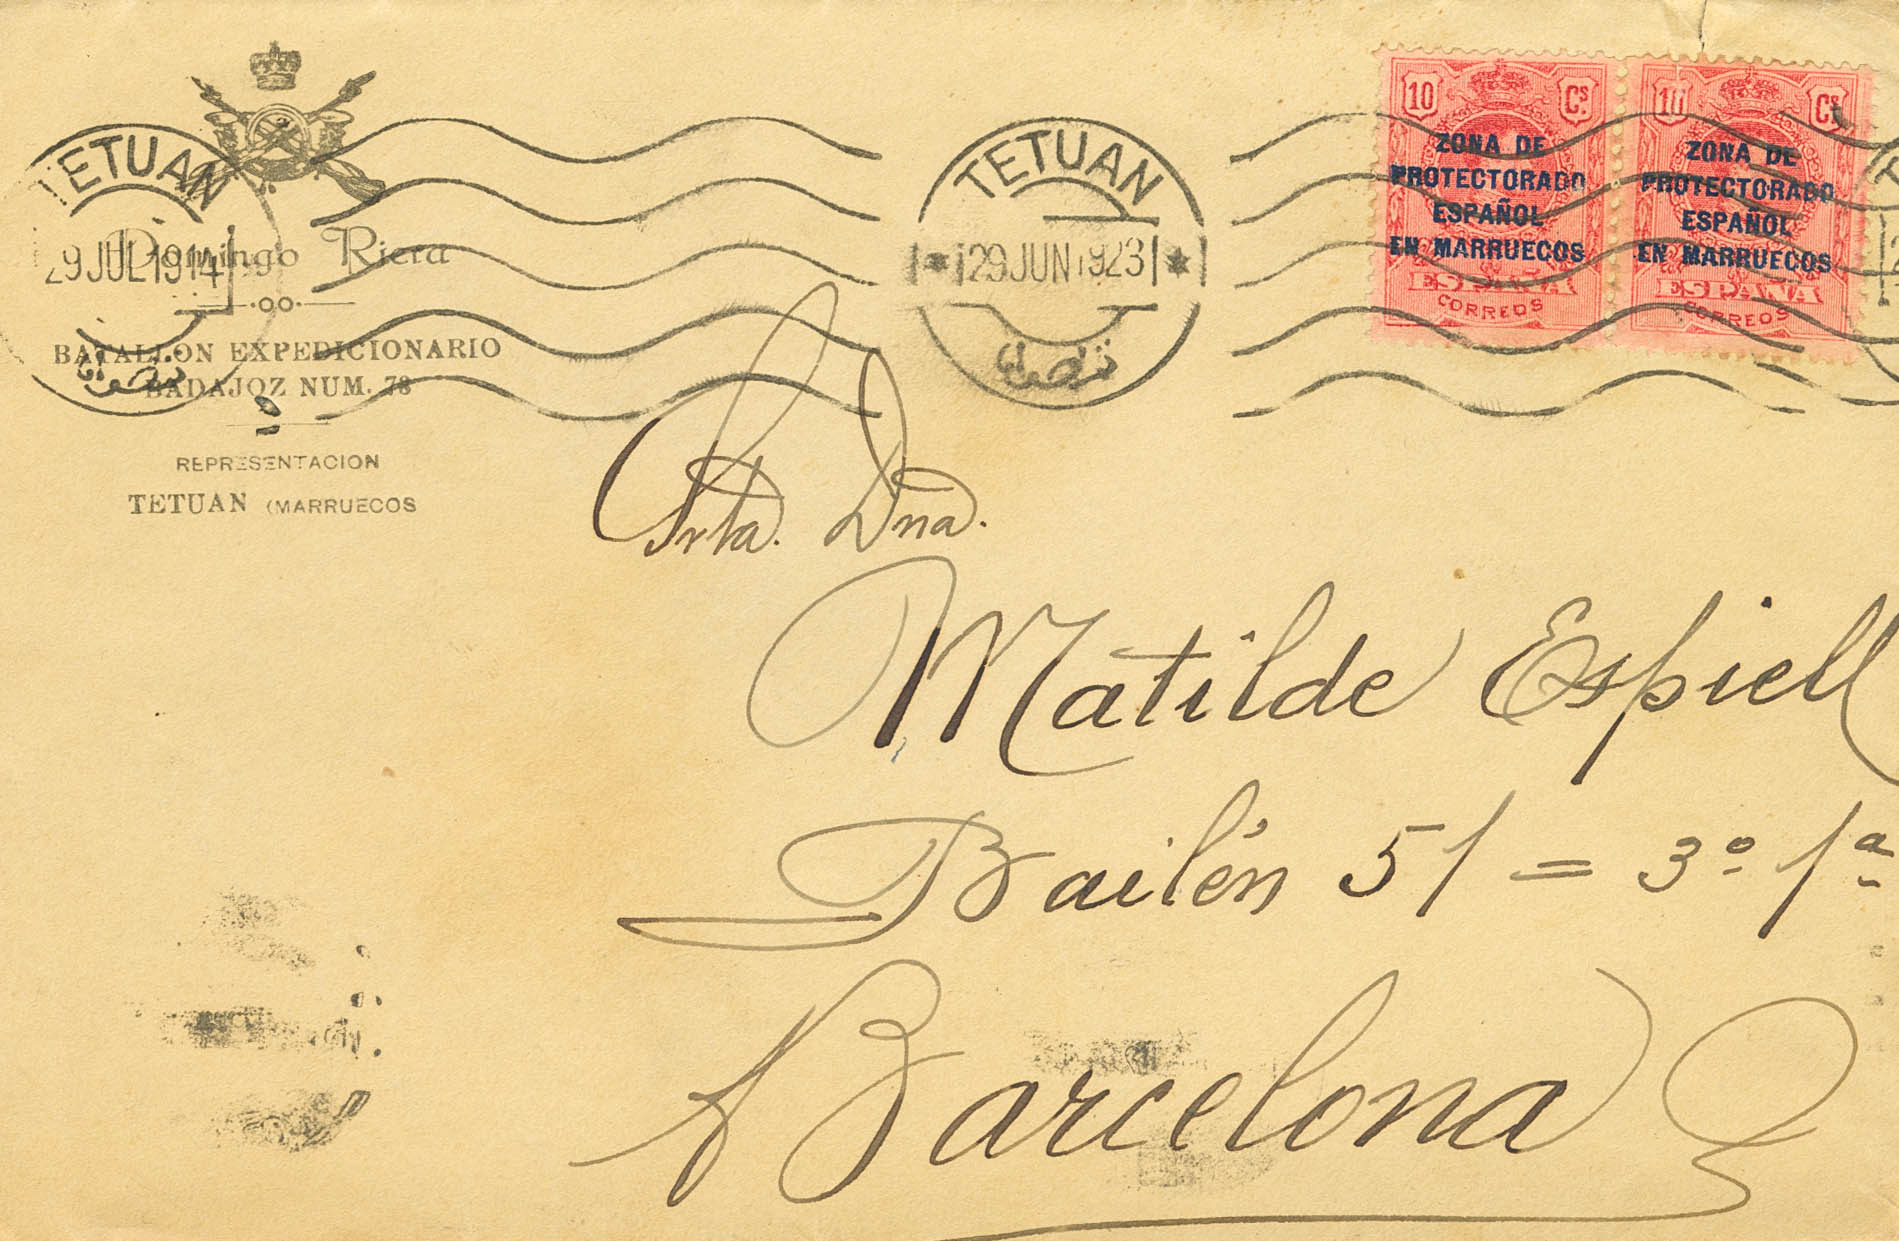 TETUAN
29 JUL 1914
Domingo Riera
BATALLON EXPEDICIONARIO
BADAJOZ NUM. 73
REPRESENTACION
TETUAN (MARRUECOS
TETUAN
29 JUN 1923
10 Cs
ZONA DE
PROTECTORADO
ESPAÑOL
EN MARRUECOS
ESPAÑA
CORREOS
10 Cs
ZONA DE
PROTECTORADO
ESPAÑOL
EN MARRUECOS
ESPAÑA
CORREOS
Srta. Dna.
Matilde Espiell
Bailén 51 = 3º 1ª
Barcelona